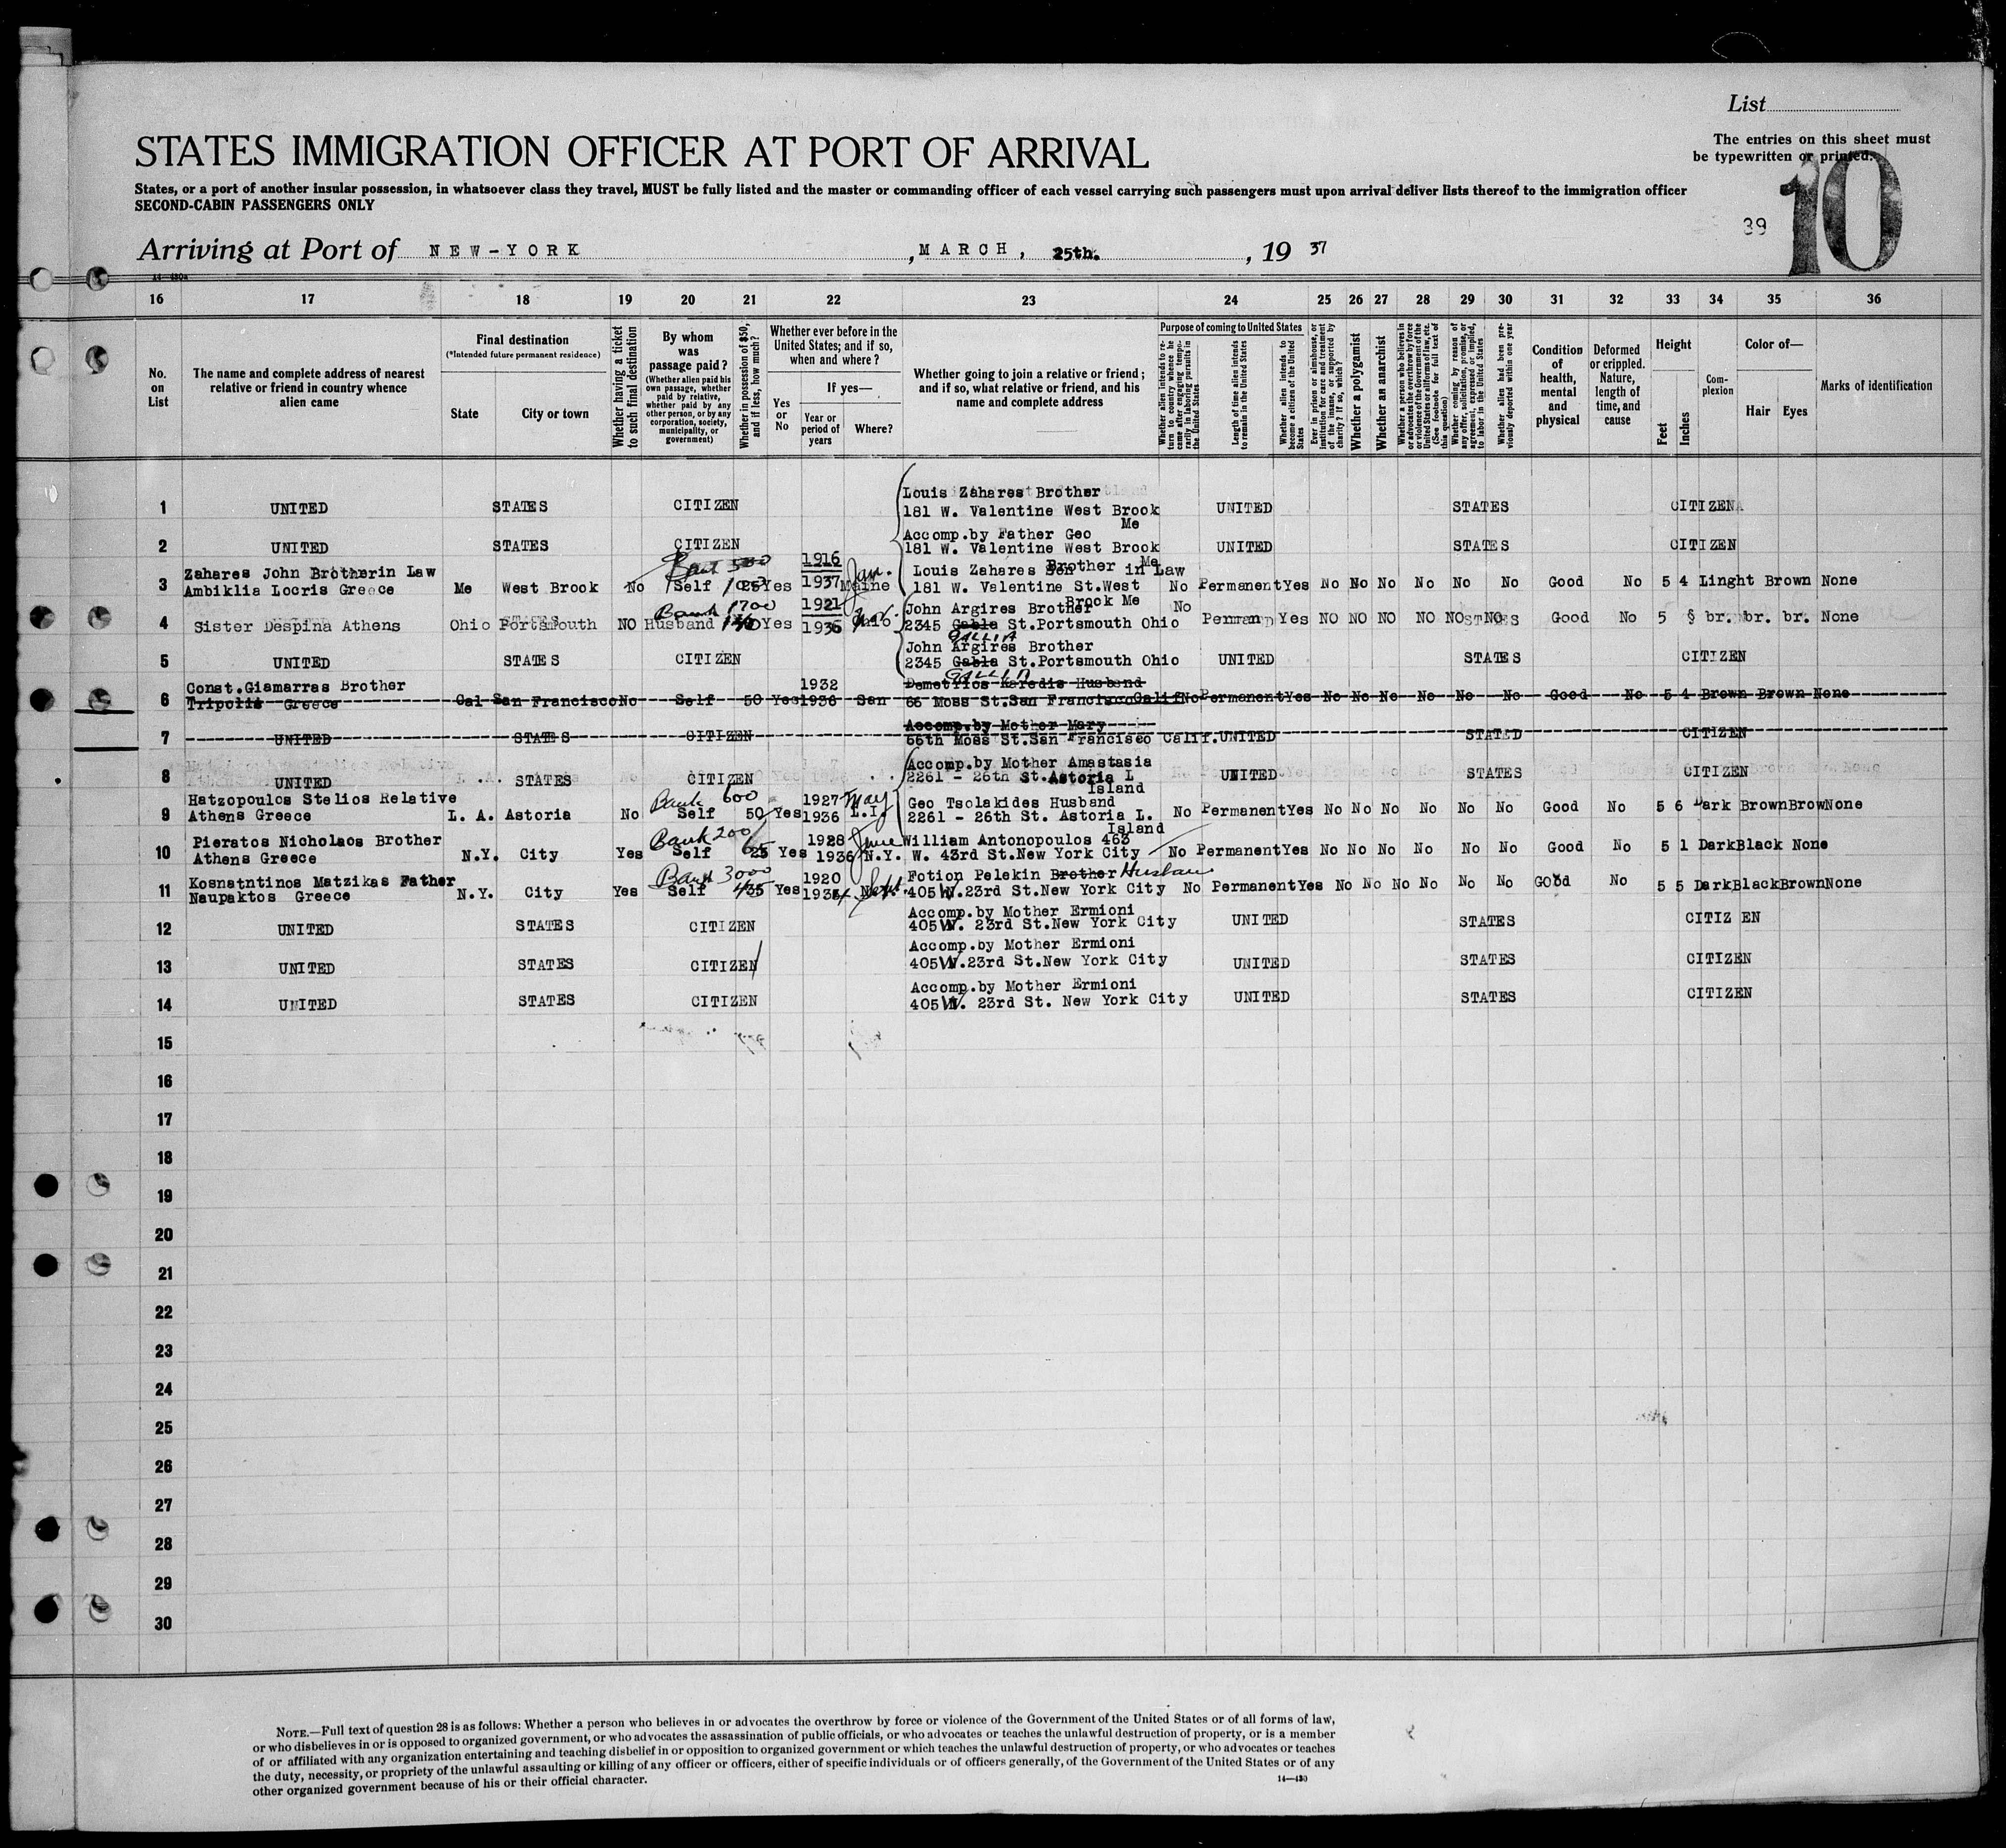 List
The entries on this sheet must
be typewritten or printed.
10
39
STATES IMMIGRATION OFFICER AT PORT OF ARRIVAL
States, or a port of another insular possession, in whatsoever class they travel, MUST be fully listed and the master or commanding officer of each vessel carrying such passengers must upon arrival deliver lists thereof to the immigration officer
SECOND-CABIN PASSENGERS ONLY
Arriving at Port of NEW-YORK , MARCH, 25th. , 19 37
14-430a
16 17 18 19 20 21 22 23 24 25 26 27 28 29 30 31 32 33 34 35 36
No. on List
The name and complete address of nearest relative or friend in country whence alien came
Final destination
(*Intended future permanent residence)
State
City or town
Whether having a ticket to such final destination
By whom was passage paid?
(Whether alien paid his own passage, whether paid by relative, whether paid by any other person, or by any corporation, society, municipality, or government)
Whether in possession of $50, and if less, how much?
Whether ever before in the United States; and if so, when and where?
Yes or No
If yes—
Year or period of years
Where?
Whether going to join a relative or friend; and if so, what relative or friend, and his name and complete address
Purpose of coming to United States
Whether alien intends to return to country whence he came after engaging temporarily in laboring pursuits in the United States
Length of time alien intends to remain in the United States
Whether alien intends to become a citizen of the United States
Ever in prison or almshouse, or institution for care and treatment of the insane, or supported by charity? if so, which?
Whether a polygamist
Whether an anarchist
Whether a person who believes in or advocates the overthrow by force or violence of the Government of the United States or all forms of law, etc. (See footnote for full text of this question)
Whether coming by reason of any offer, solicitation, promise, or agreement, expressed or implied, to labor in the United States
Whether alien had been previously deported within one year
Condition of health, mental and physical
Deformed or crippled. Nature, length of time, and cause
Height
Feet
Inches
Complexion
Color of—
Hair
Eyes
Marks of identification
Louis Zahares Brother
1 UNITED STATES CITIZEN 181 W. Valentine West Brook Me UNITED STATES CITIZEN
Accomp.by Father Geo
2 UNITED STATES CITIZEN 181 W. Valentine West Brook Me UNITED STATES CITIZEN
Zahares John Brotherin Law Bank 500 1916 Jan. Louis Zahares Brother in Law
3 Ambiklia Locris Greece Me West Brook No Self Yes 1937 Maine 181 W. Valentine St.West Brook Me No Permanent Yes No No No No No No Good No 5 4 Linght Brown None
Bank 1700 1921 John Argires Brother No
4 Sister Despina Athens Ohio Portsmouth NO Husband Yes 1936 Ohio 2345 Gabla GALLIA St.Portsmouth Ohio Yes NO NO NO NO NO NO Good No 5 br. br. br. None
John Argires Brother
5 UNITED STATES CITIZEN 2345 Gabla GALLIA St.Portsmouth Ohio UNITED STATES CITIZEN
Const.Giamarras Brother 1932 Demetrios Karedis Husband
6 Tripolis Greece Cal San Francisco No Self 50 Yes 1936 San 66 Moss St.San Francisco Calif No Permanent Yes No No No No No No Good No 5 4 Brown Brown None
Accomp.by Mother Mary
7 UNITED STATES CITIZEN 66th Moss St.San Francisco Calif. UNITED STATED CITIZEN
Accomp.by Mother Anastasia
8 UNITED STATES CITIZEN 2261 - 26th St.Astoria L Island UNITED STATES CITIZEN
Hatzopoulos Stelios Relative Bank 600 1927 May Geo Tsolakides Husband
9 Athens Greece L. A. Astoria No Self 50 Yes 1936 L.I. 2261 - 26th St. Astoria L. Island No Permanent Yes No No No No No No Good No 5 6 Dark Brown Brow None
Pieratos Nicholaos Brother Bank 200 1928 June William Antonopoulos 463
10 Athens Greece N.Y. City Yes Self 25 65 Yes 1936 N.Y. W. 43rd St.New York City No Permanent Yes No No No No No No Good No 5 1 Dark Black None
Kosnatntinos Matzikas Father Bank 3000 1920 Sept. Fotion Pelekin Brother Husban
11 Naupaktos Greece N.Y. City Yes Self 435 Yes 405 W.23rd St.New York City No Permanent Yes No No No No No No GOod No 5 5 Dark Black Brown None
Accomp.by Mother Ermioni
12 UNITED STATES CITIZEN 405 W. 23rd St.New York City UNITED STATES CITIZ EN
Accomp.by Mother Ermioni
13 UNITED STATES CITIZEN 405 W.23rd St.New York City UNITED STATES CITIZEN
Accomp.by Mother Ermioni
14 UNITED STATES CITIZEN 405 W. 23rd St. New York City UNITED STATES CITIZEN
15
16
17
18
19
20
21
22
23
24
25
26
27
28
29
30
NOTE.—Full text of question 28 is as follows: Whether a person who believes in or advocates the overthrow by force or violence of the Government of the United States or of all forms of law,
or who disbelieves in or is opposed to organized government, or who advocates the assassination of public officials, or who advocates or teaches the unlawful destruction of property, or is a member
of or affiliated with any organization entertaining and teaching disbelief in or opposition to organized government or which teaches the unlawful destruction of property, or who advocates or teaches
the duty, necessity, or propriety of the unlawful assaulting or killing of any officer or officers, either of specific individuals or of officers generally, of the Government of the United States or of any
other organized government because of his or their official character.
14—430